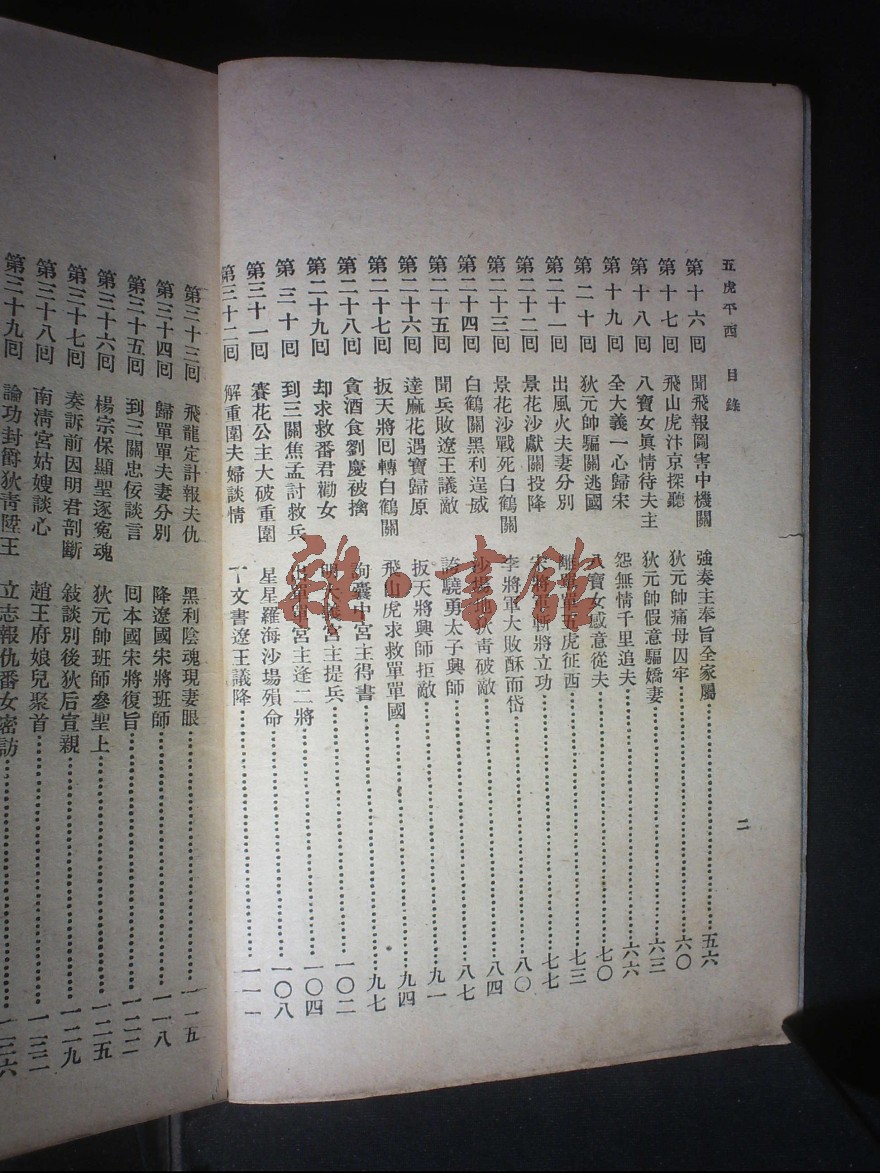 五虎平西　目錄
第十六回　聞飛報圖害中機關　強奏主奉旨全家屬……五六
第十七回　飛山虎汴京探聽　狄元帥痛母囚牢……六〇
第十八回　八寶女眞情待夫主　狄元帥假意騙嬌妻……六三
第十九回　全大義一心歸宋　怨無情千里追夫……六六
第二十回　狄元帥騙關逃國　八寶女感意從夫……七〇
第二十一回　出風火夫妻分別　離單單五虎征西……七三
第二十二回　景花沙獻關投降　宋將軍斬將立功……七七
第二十三回　景花沙戰死白鶴關　李將軍大敗酥而岱……八〇
第二十四回　白鶴關黑利逞威　沙場地狄靑破敵……八四
第二十五回　聞兵敗遼王議敵　誇驍勇太子興師……八七
第二十六回　達麻花遇寶歸原　扳天將興師拒敵……九一
第二十七回　扳天將回轉白鶴關　飛山虎求救單單國……九四
第二十八回　貪酒食劉慶被擒　狗囊中宮主得書……九七
第二十九回　却求救番君勸女　明大義宮主提兵……一〇二
第三十回　到三關焦孟討救兵　宮主逢二將……一〇四
第三十一回　賽花公主大破重圍　星星羅海沙場殞命……一〇八
第三十二回　解重圍夫婦談情　下文書遼王議降……一一一
第三十三回　飛龍定計報夫仇　黑利陰魂現妻眼……一一五
第三十四回　歸單單夫妻分別　降遼國宋將班師……一一八
第三十五回　到三關忠佞談言　回本國宋將復旨……一二二
第三十六回　楊宗保顯聖逐冤魂　狄元帥班師參聖上……一二五
第三十七回　奏訴前因明君剖斷　敍談別後狄后宣親……一二九
第三十八回　南淸宮姑嫂談心　趙王府娘兒聚首……一三二
第三十九回　論功封爵狄靑陞王　立志報仇番女密訪……一三六
二
雜·書館